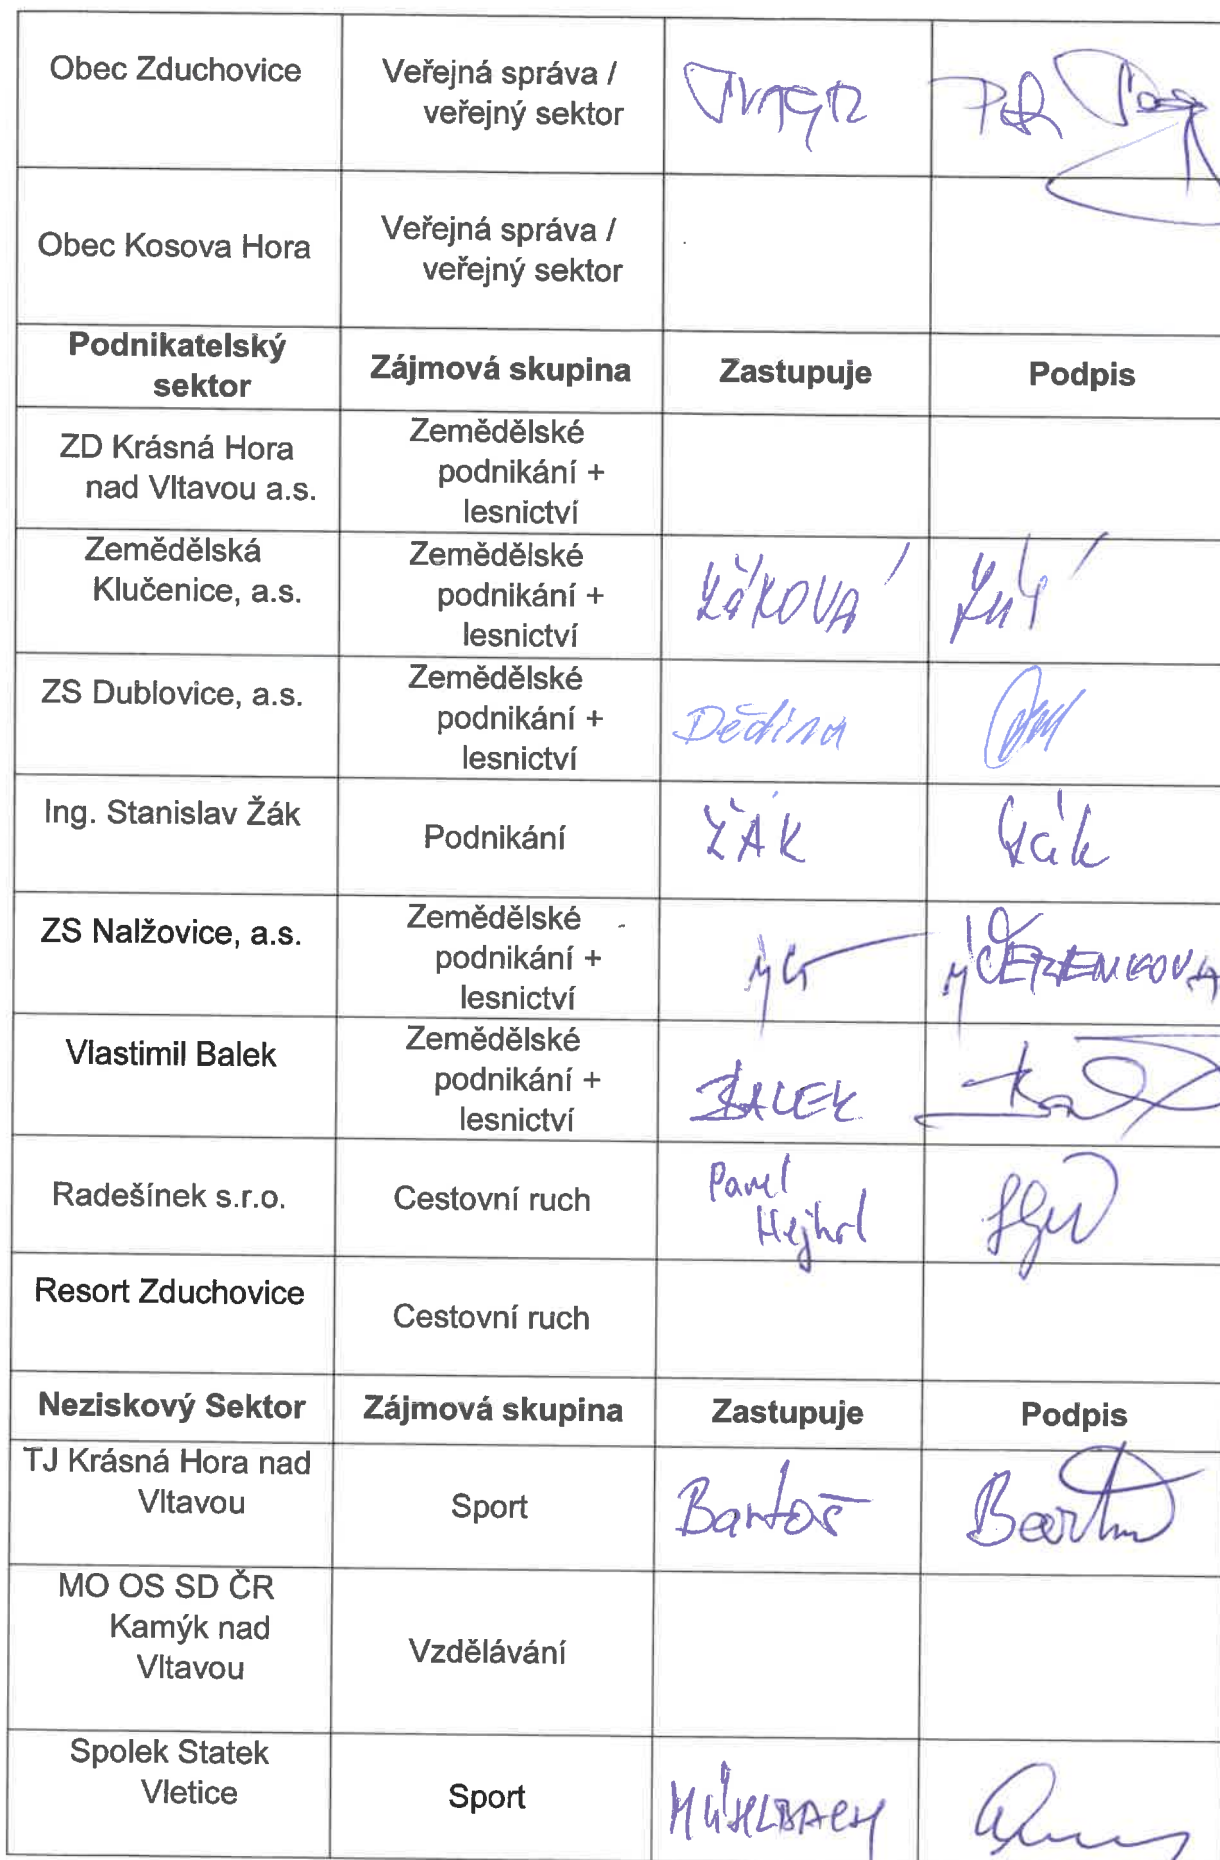 Obec Zduchovice
Veřejná správa /
veřejný sektor
Obec Kosova Hora
Veřejná správa /
veřejný sektor
Podnikatelský
sektor
Zájmová skupina
Zastupuje
Podpis
ZD Krásná Hora
nad Vltavou a.s.
Zemědělské
podnikání +
lesnictví
Zemědělská
Klučenice, a.s.
Zemědělské
podnikání +
lesnictví
ŽÁKOVÁ
ZS Dublovice, a.s.
Zemědělské
podnikání +
lesnictví
Dědina
Ing. Stanislav Žák
Podnikání
ŽÁK
Žák
ZS Nalžovice, a.s.
Zemědělské
podnikání +
lesnictví
Vlastimil Balek
Zemědělské
podnikání +
lesnictví
BALEK
Radešínek s.r.o.
Cestovní ruch
Pavel
Hejhrl
Resort Zduchovice
Cestovní ruch
Neziskový Sektor
Zájmová skupina
Zastupuje
Podpis
TJ Krásná Hora nad
Vltavou
Sport
Bartoš
MO OS SD ČR
Kamýk nad
Vltavou
Vzdělávání
Spolek Statek
Vletice
Sport
MÜHLBACH